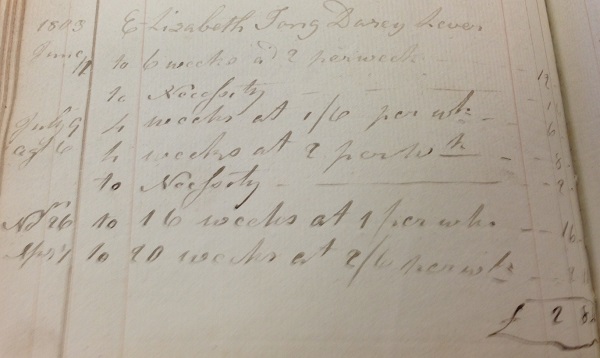 1803 Elizabeth Tong Darcy Lever
June 11 to 6 weeks at 2 per week - 12
to Necessity - 1
July 9 4 weeks at 1/6 per wk - 6
ag 6 4 weeks at 2 per wk - 8
to Necessity - 2
Nov 26 to 16 weeks at 1 per wk - 16
to 20 weeks at 2/6 per wk -
£ 2 8